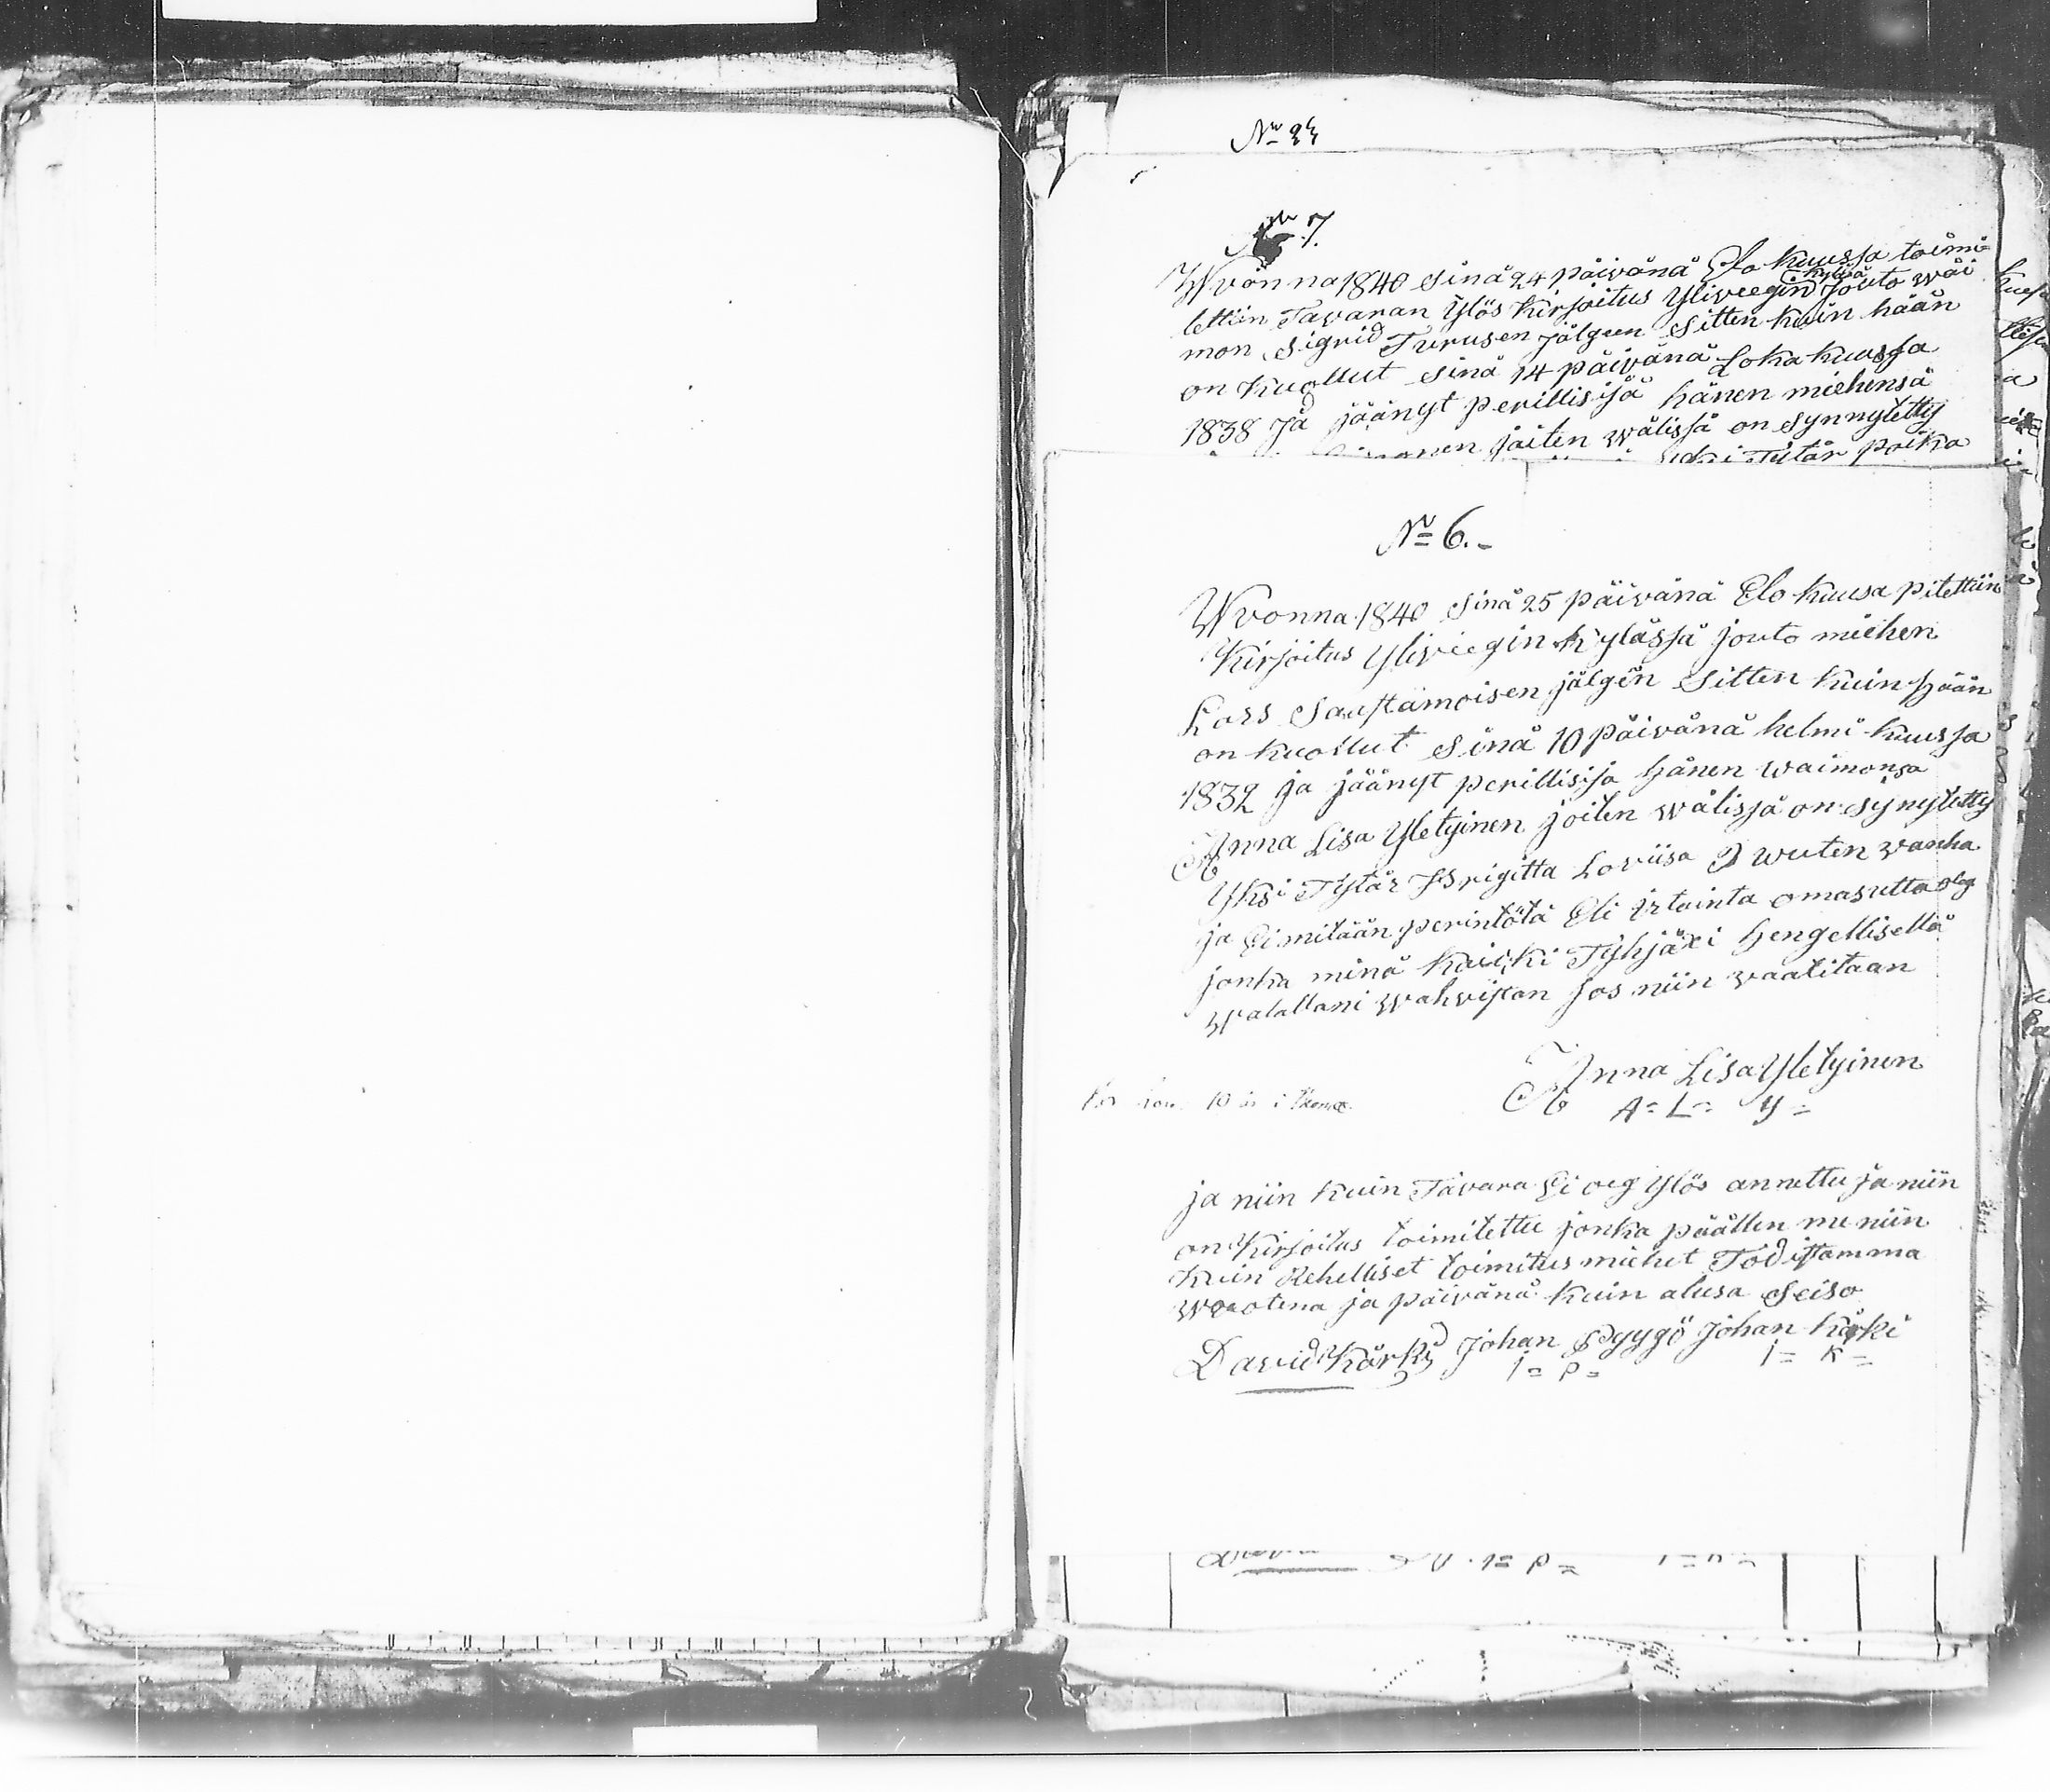 No 24
No 7.
Wvonna 1840 Sinä 24 päivänä Elo kuussa toimi=
tettiin Tavaran Ylös Kirjoitus Yliviegin kyläsä Jouto wäi
mon Sigrid Turusen jälgeen Sitten kuin hään
on Kuollut Sinä 14 päivänä Loka kuussa
1838 Ja jäänyt perillisijä hänen miehensä
joiten wälissä on Synnytetty
Tytär poika
No 6.-
Wvonna 1840 Sinä 25 päivänä Elo kuusa pitettiin
Kirjoitus Yliviegin kylässä jouto miehen
Lars Saastamoisen jälgen Sitten kuin Hään
on kuollut Sinä 10 päivänä helmi kuussa
1832 ja jäänyt perillisijä Hänen waimonsa
Anna Lisa Yletyinen joiten wälissä on synytetty
Yksi Tytär Brigitta Loviisa 9 wuten wanha
ja Ei mitään perintötä Eli irtainta omasutta oleg
jonka minä kaicki Tyhjäxi Hengellisellä
walallani wahvistan Jos niin waatitaan
Anna Lisa Yletyinen
A= L= Y=
10 år i
ja niin kuin Tavara Ei oeg Ylös annettu ja niin
on Kirjoitus toimitettu jonka päällen me niin
kuin Rehelliset toimitus miehet Todistamma
wuotena ja päivänä kuin alusa Seiso
David Kärki Johan Pyygö Johan Kärki
J= P= J= K=
J= P= J= K=